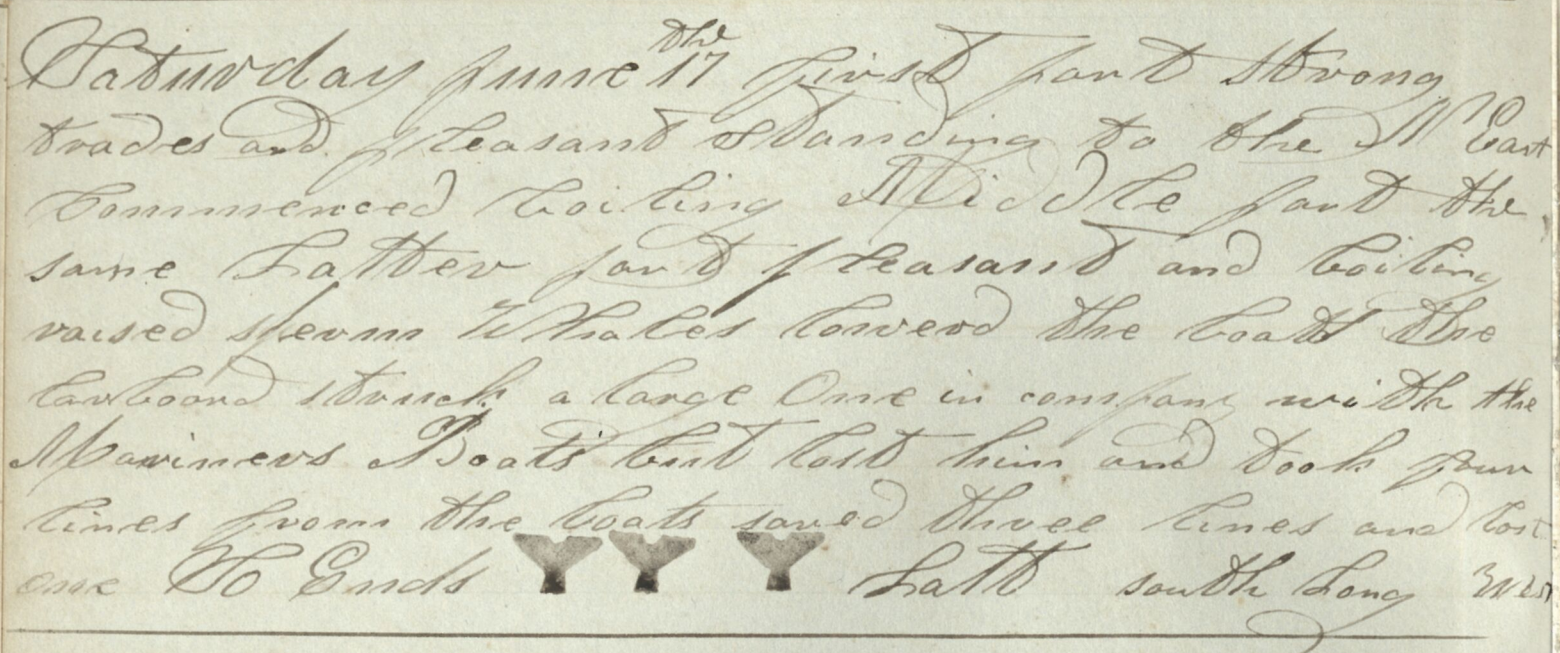 Saturday June 17th first part strong
trades and pleasant standing to the N East
Commenced boiling Middle part the
same Latter part pleasant and boiling
raised sperm Whales lowerd the boats the
larboard struck a large One in company with the
Mariners Boats but lost him and took four
lines from the boats saved three lines and lost
one So Ends Latt south Long West